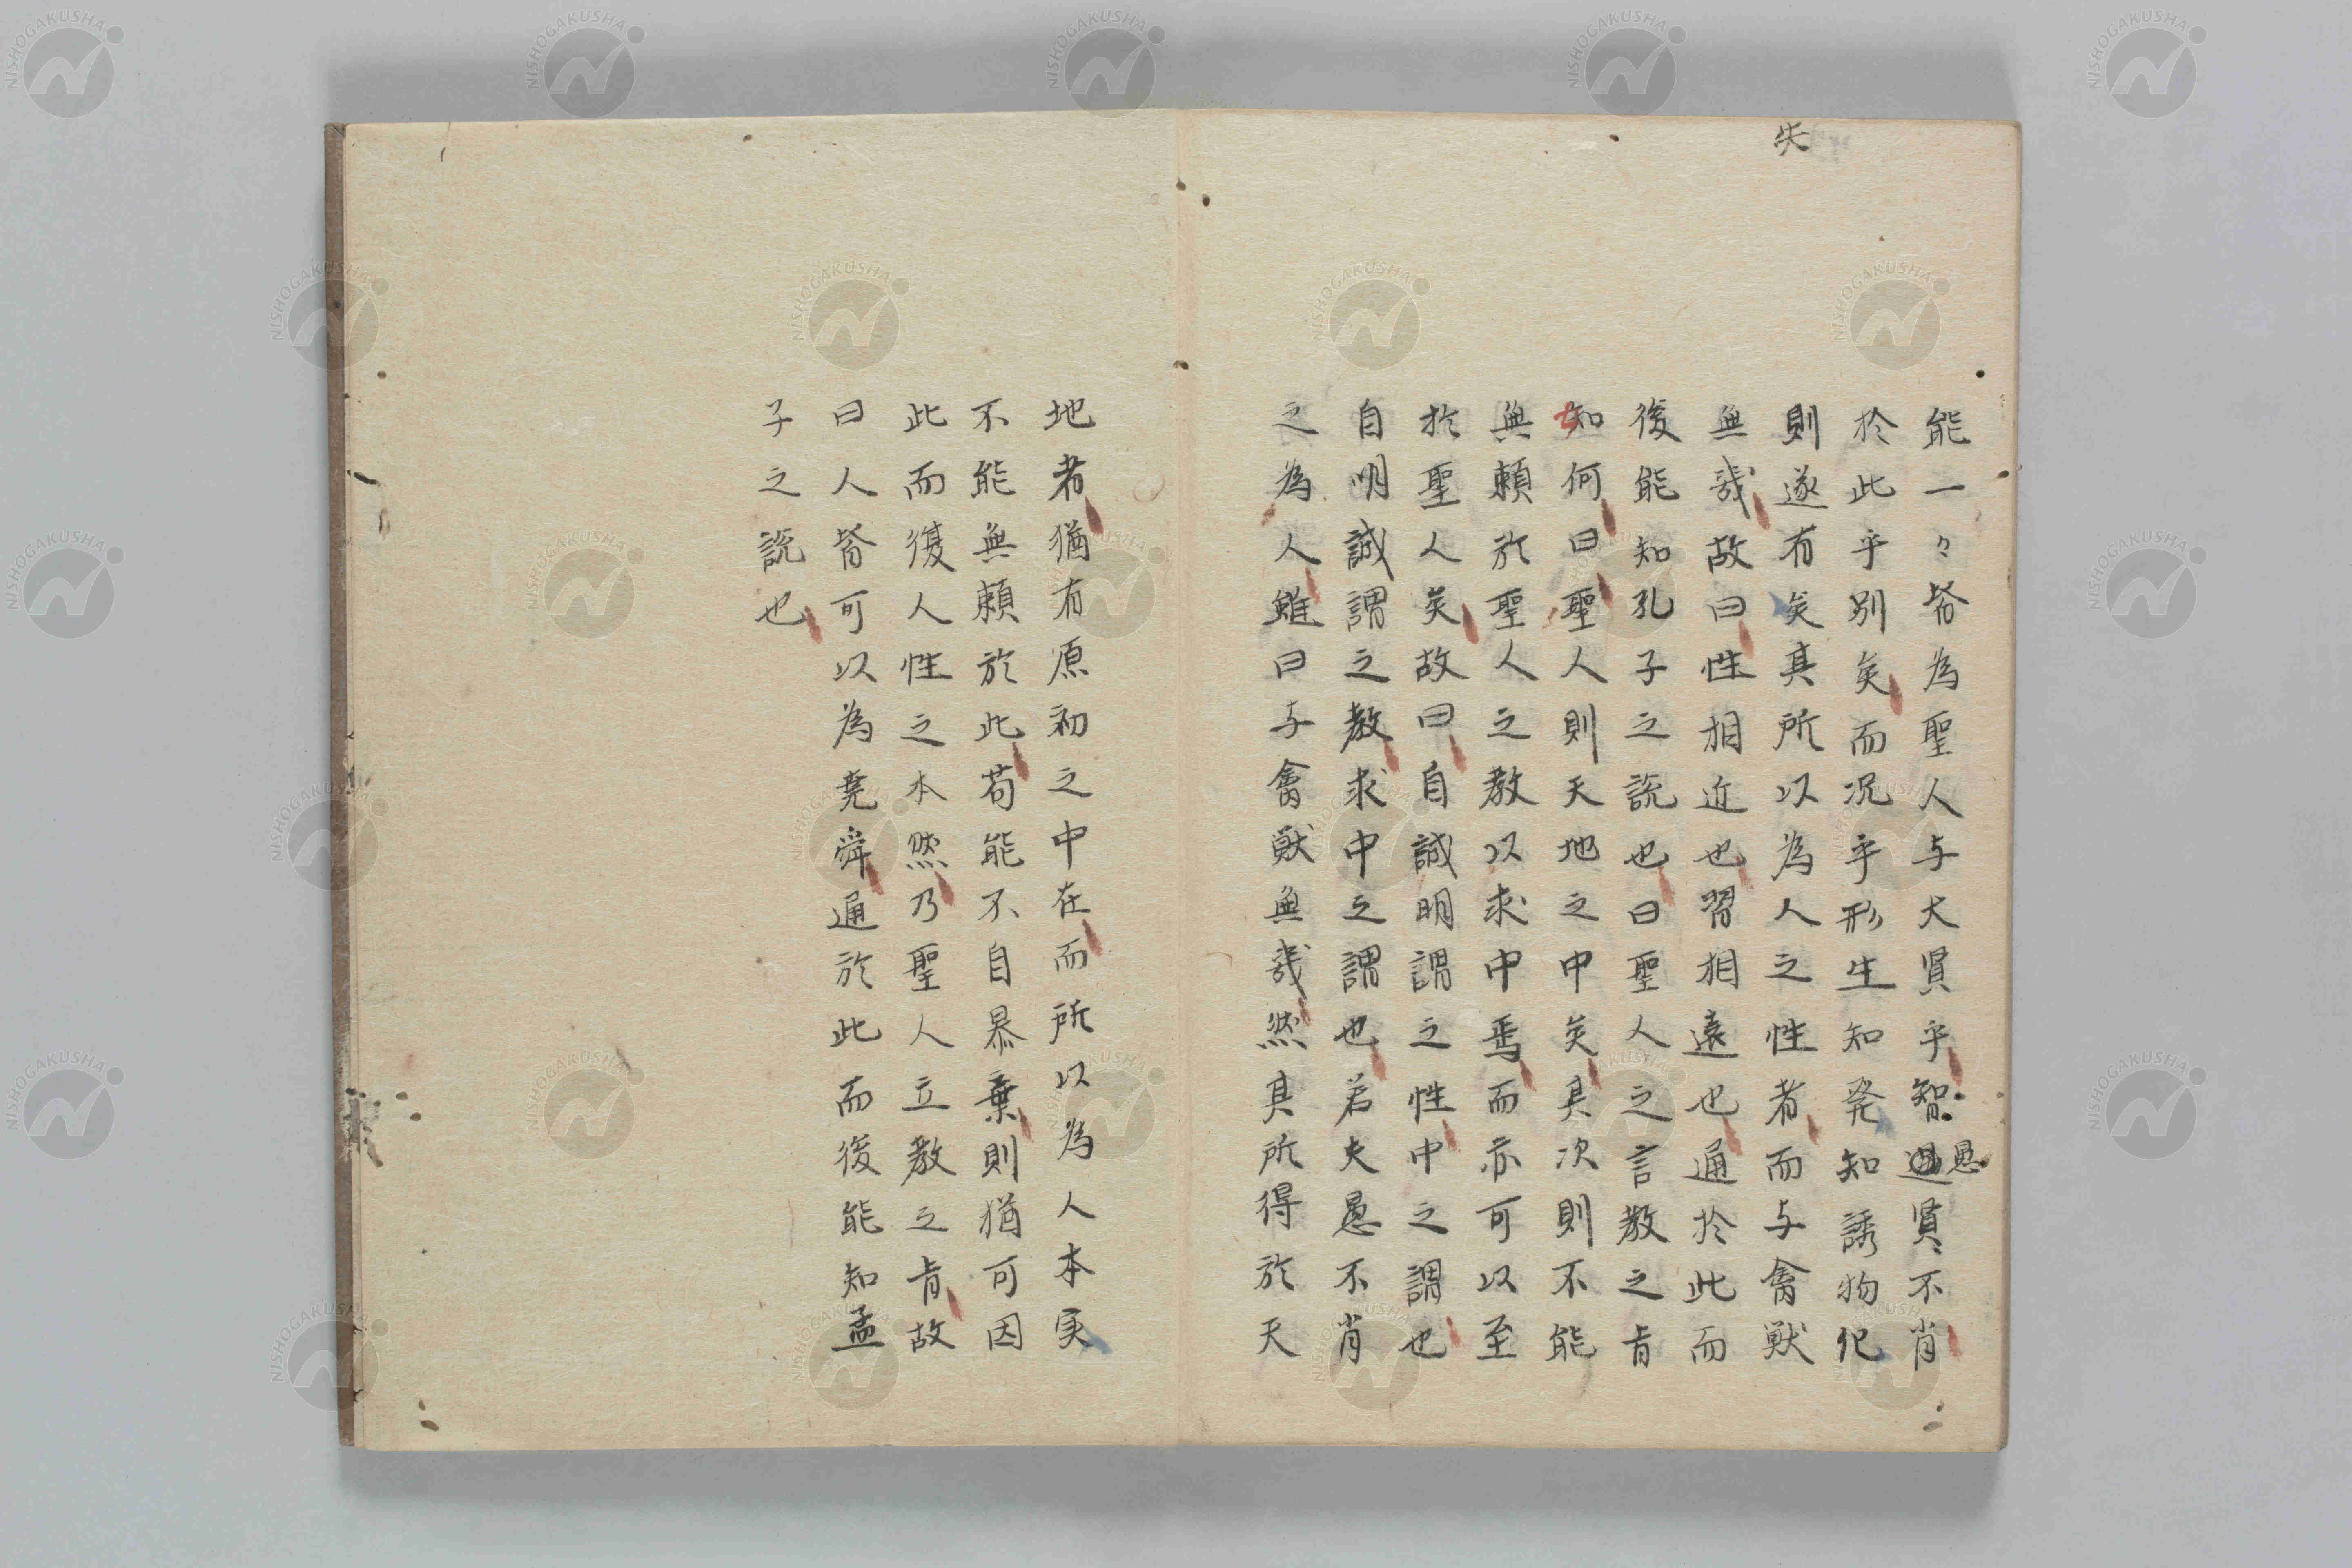 失
能一々皆為聖人与大賢乎智愚過賢不肖
於此乎別矣而况乎形生知発知誘物化
則遂有矣其所以為人之性者而与禽獣
無哉故曰性相近也習相遠也通於此而
後能知孔子之説也曰聖人之言教之旨
如何曰聖人則天地之中矣其次則不能
無頼於聖人之教以求中焉而亦可以至
於聖人矣故曰自誠明謂之性中之謂也
自明誠謂之教求中之謂也若夫愚不肖
之為人雖曰与禽獣無哉然其所得於天
地者猶有原初之中在而所以為人本実
不能無頼於此苟能不自暴棄則猶可因
此而復人性之本然乃聖人立教之旨故
曰人皆可以為堯舜通於此而後能知孟
子之説也
NISHOGAKUSHA